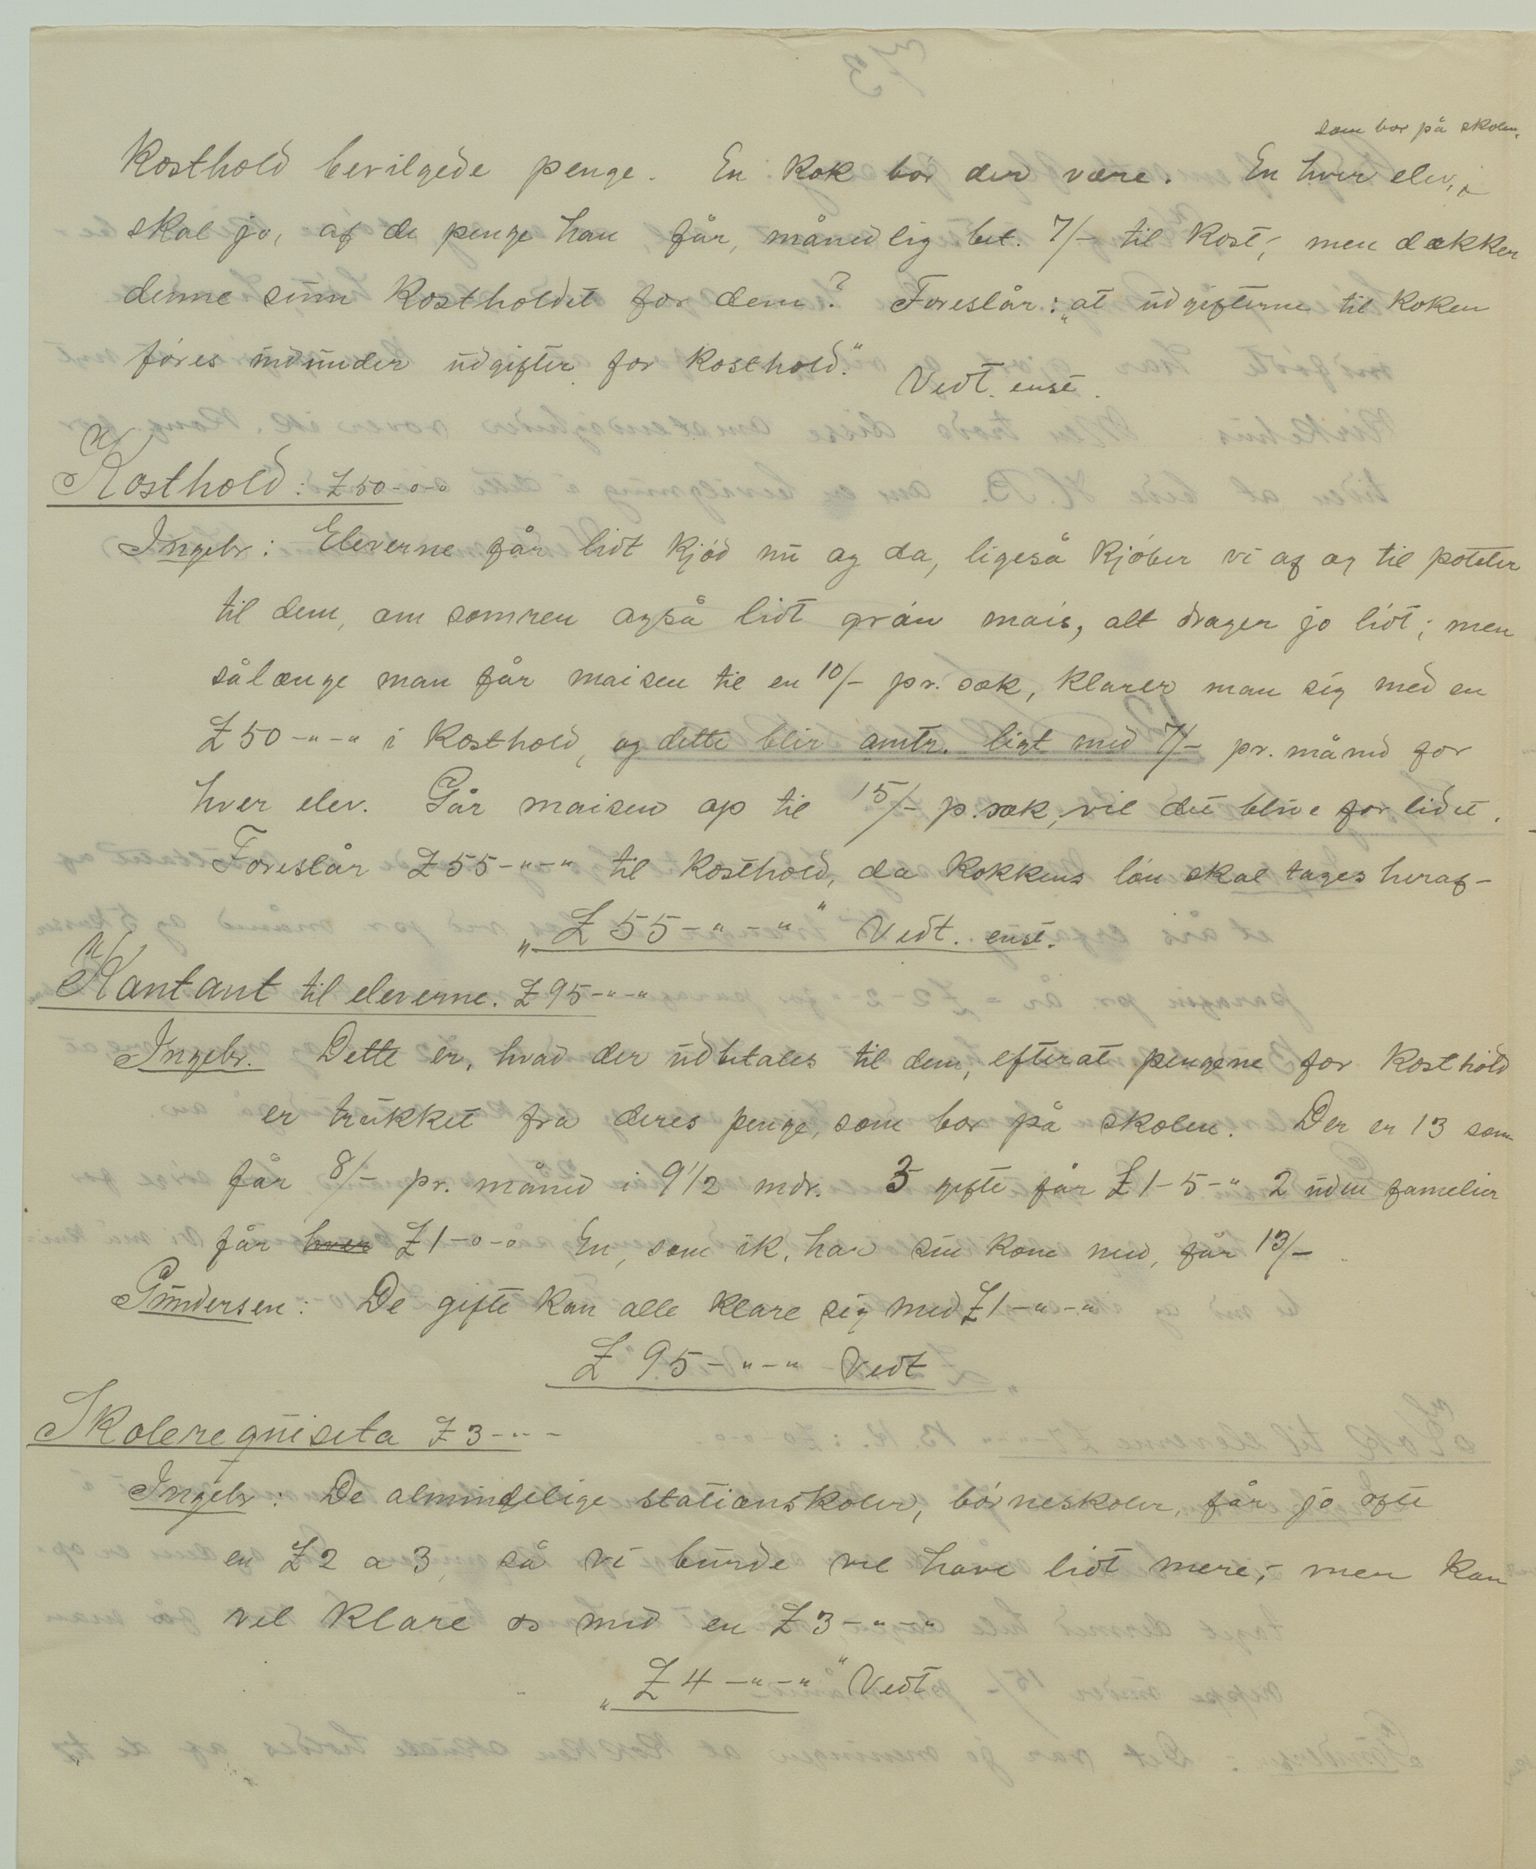 som bor på skolen,
Kosthold bevilgede penge. En Kok bør der være. En hver elev,
skal jo, af de penge han får, månedlig bet. 7/- til Kost; men dækker
denne sum Kostholdet for dem? Foreslår: „at udgifterne til Koken
føres indunder udgifter for Kosthold."
Vedt. enst.
Kosthold: £50-0-0
Ingebr: Eleverne får lidt Kjød nu og da, ligeså Kjøber vi af og til poteter
til dem, om somren også lidt grøn mais, alt drager jo lidt; men
sålænge man får maisen til en 10/- pr. sæk, klarer man sig med en
£50-"-" i Kosthold, og dette blir omtr. ligt med 7/- pr. måned for
hver elev. Går maisen op til 15/- p. sæk, vil det blive for lidet.
Foreslår £55-"-" til Kosthold, da Kokkens løn skal tages heraf-
„£55-"-"" Vedt. enst.
Kontant til eleverne. £95-"-"
Ingebr. Dette er, hvad der udbetales til dem, efterat pengene for Kosthold
er trukket fra deres penge, som bor på skolen. Der er 13 som
får 8/- pr. måned i 9 1/2 mdr. 3 gifte får £1-5-" 2 uden familier
får hver £1-0-0 En, som ik. har sin kone med, får 13/-
Gundersen: De gifte Kan alle Klare sig med £1-"-"
£95-"-" Vedt
Skolerequisita £3-"-
Ingebr: De almindelige stationsskoler, børneskoler, får jo ofte
en £2 a 3, så vi burde vel have lidt mere; men Kan
vel Klare os med en £3-"-"
„£4-"-"" Vedt